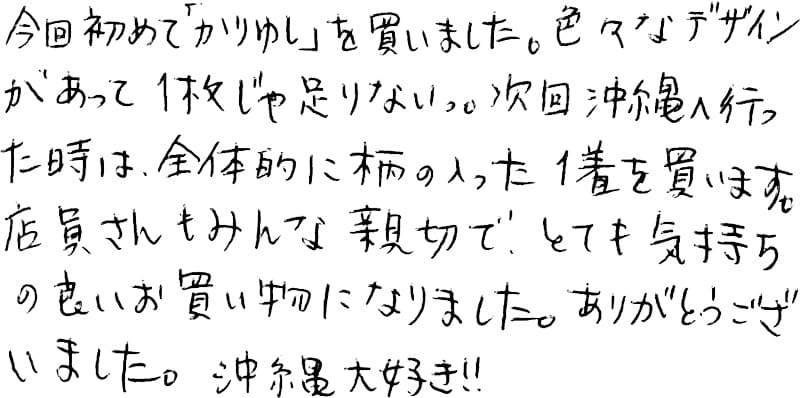 今回初めて「かりゆし」を買いました。色々なデザイン
があって1枚じゃ足りないっ。次回沖縄へ行っ
た時は、全体的に柄の入った1着を買います。
店員さんもみんな親切で、とても気持ち
の良いお買い物になりました。ありがとうござ
いました。沖縄大好き!!